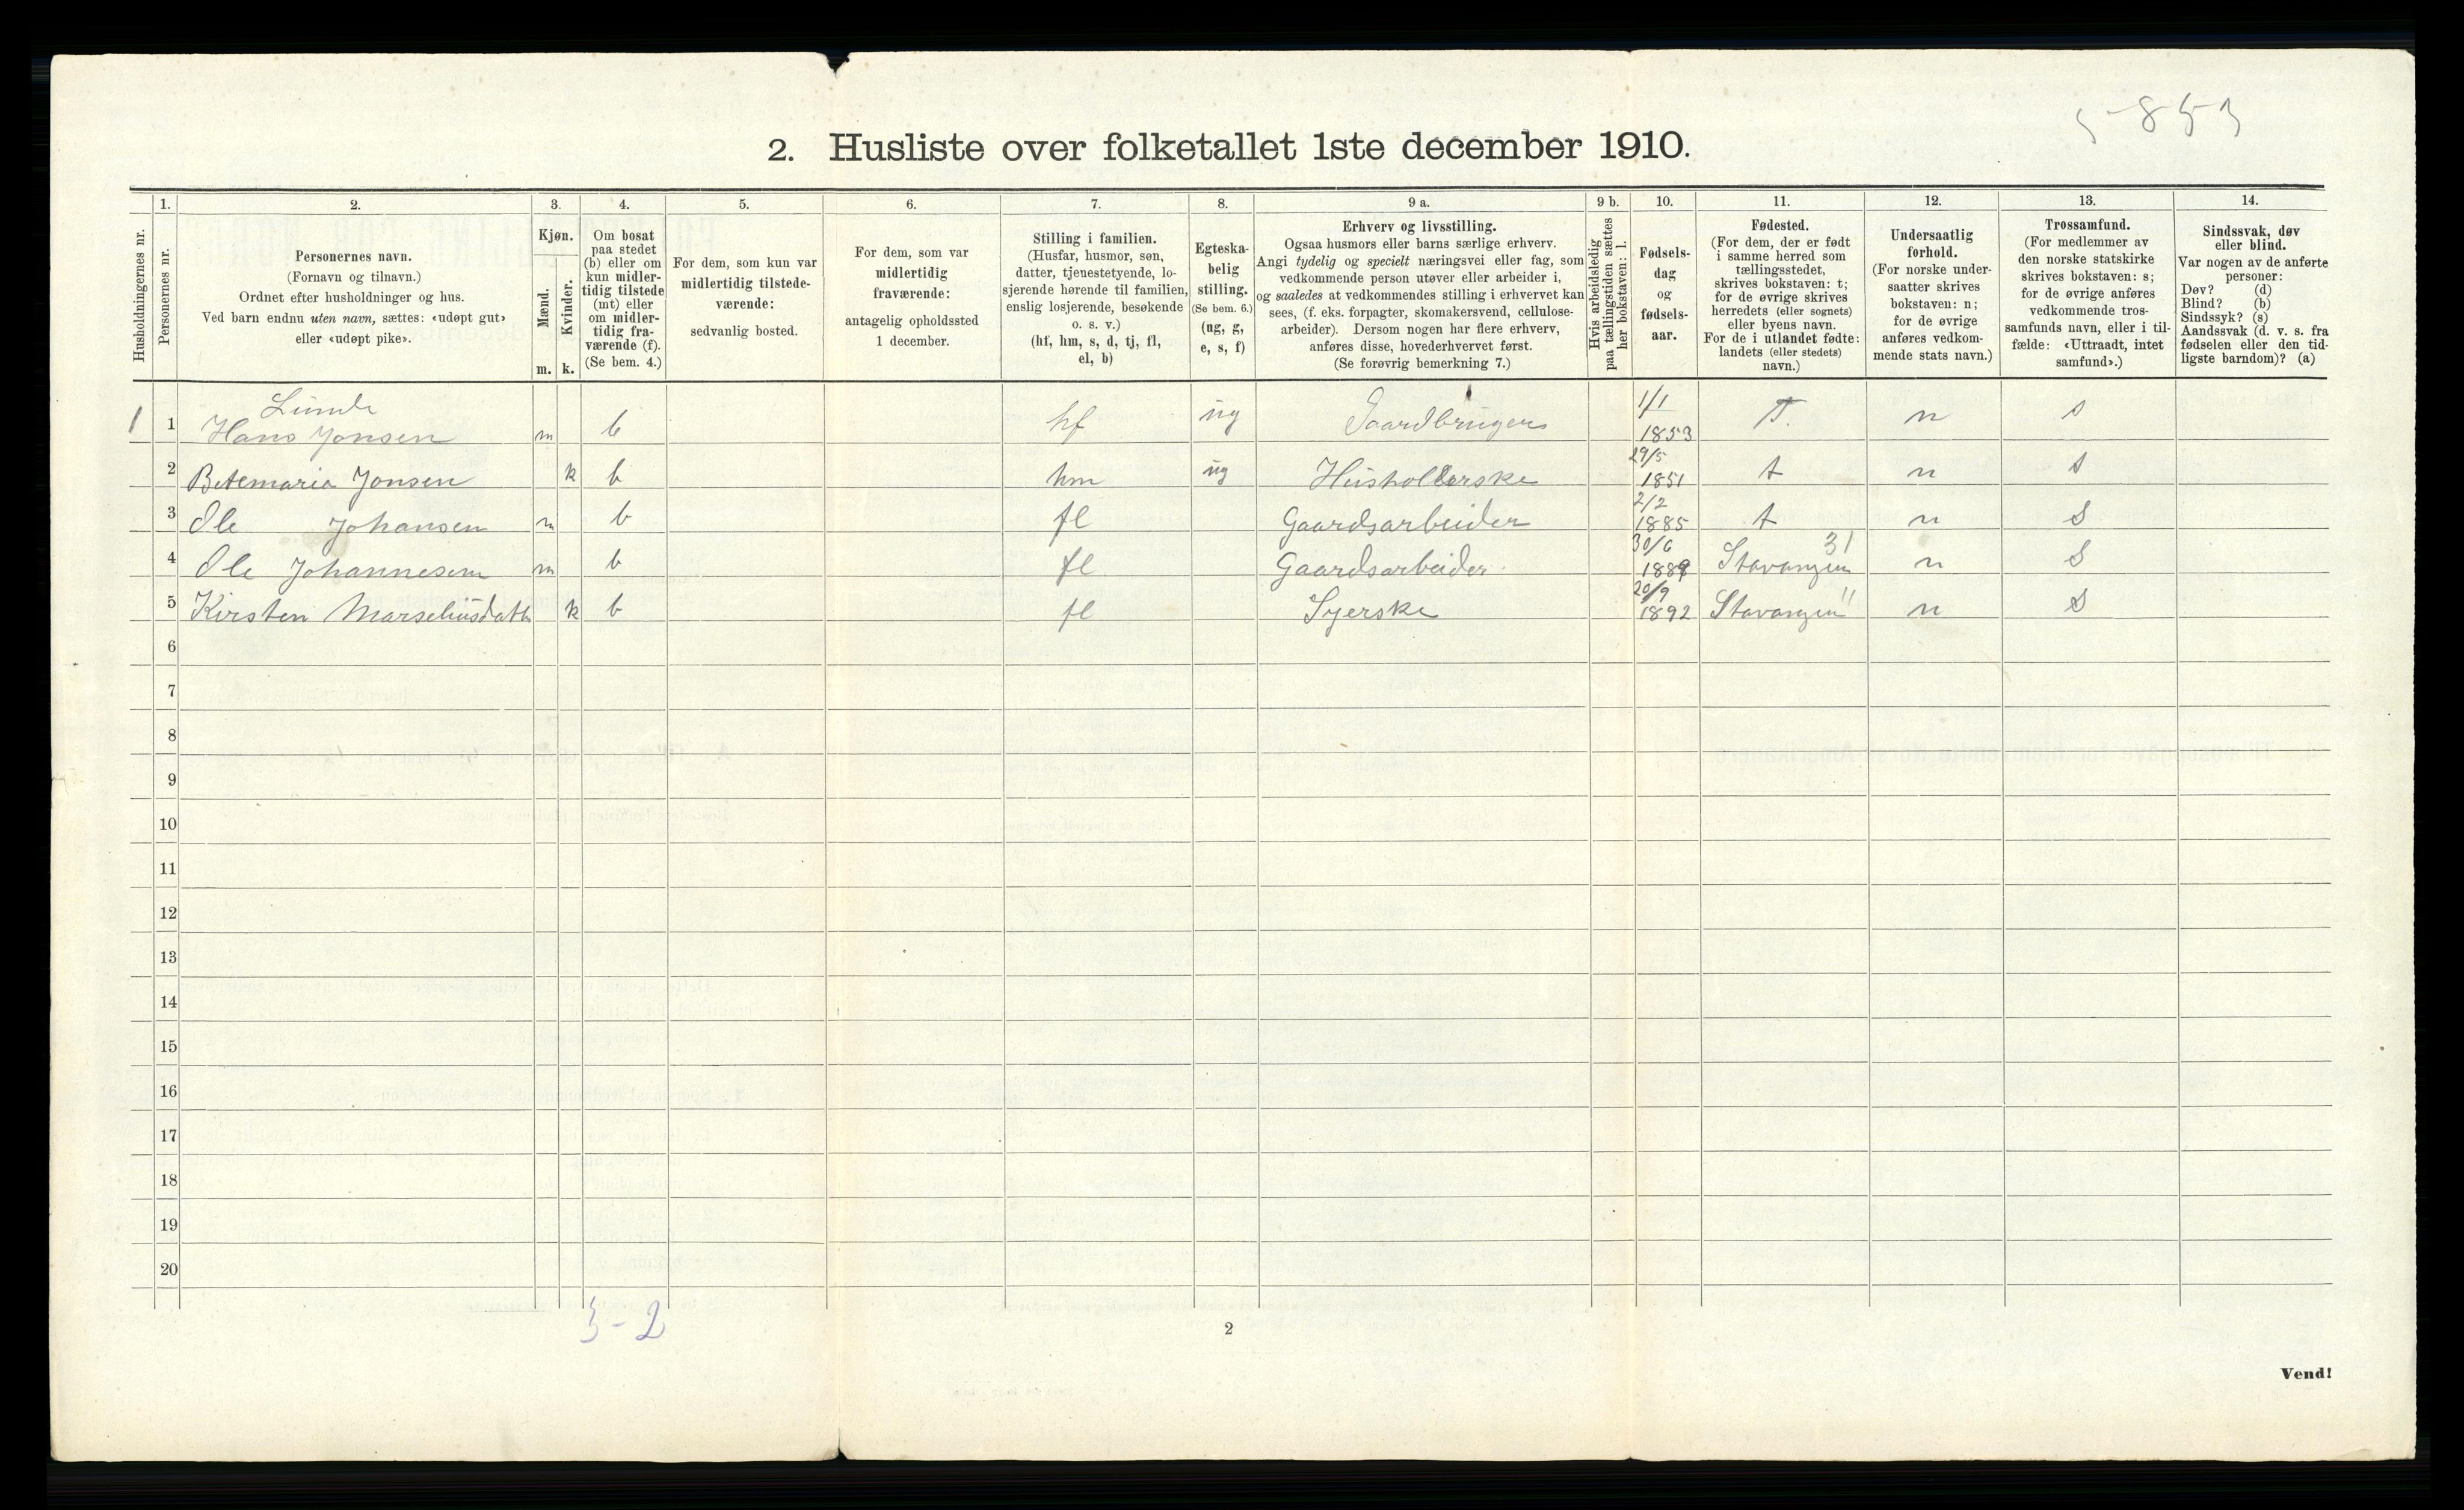 5-853
2. Husliste over folketallet 1ste december 1910.
Husholdningernes nr.
1.
Personernes nr.
2.
Personernes navn.
(Fornavn og tilnavn.)
Ordnet efter husholdninger og hus.
Ved barn endnu uten navn, sættes: «udøpt gut»
eller «udøpt pike».
3.
Kjøn.
Mænd.
Kvinder.
m. k.
4.
Om bosat
paa stedet
(b) eller om
kun midler-
tidig tilstede
(mt) eller
om midler-
tidig fra-
værende (f).
(Se bem. 4.)
5.
For dem, som kun var
midlertidig tilstede-
værende:
sedvanlig bosted.
6.
For dem, som var
midlertidig
fraværende:
antagelig opholdssted
1 december.
7.
Stilling i familien.
(Husfar, husmor, søn,
datter, tjenestetyende, lo-
sjerende hørende til familien,
enslig losjerende, besøkende
o. s. v.)
(hf, hm, s, d, tj, fl,
el, b)
8.
Egteska-
belig
stilling.
(Se bem. 6.)
(ug, g,
e, s, f)
9 a.
Erhverv og livsstilling.
Ogsaa husmors eller barns særlige erhverv.
Angi tydelig og specielt næringsvei eller fag, som
vedkommende person utøver eller arbeider i,
og saaledes at vedkommendes stilling i erhvervet kan
sees, (f. eks. forpagter, skomakersvend, cellulose-
arbeider). Dersom nogen har flere erhverv,
anføres disse, hovederhvervet først.
(Se forøvrig bemerkning 7.)
9 b.
Hvis arbeidsledig
paa tællingstiden sættes
her bokstaven: l.
10.
Fødsels-
dag
og
fødsels-
aar.
11.
Fødested.
(For dem, der er født
i samme herred som
tællingsstedet,
skrives bokstaven: t;
for de øvrige skrives
herredets (eller sognets)
eller byens navn.
For de i utlandet fødte:
landets (eller stedets)
navn.)
12.
Undersaatlig
forhold.
(For norske under-
saatter skrives
bokstaven: n;
for de øvrige
anføres vedkom-
mende stats navn.)
13.
Trossamfund.
(For medlemmer av
den norske statskirke
skrives bokstaven: s;
for de øvrige anføres
vedkommende tros-
samfunds navn, eller i til-
fælde: «Uttraadt, intet
samfund».)
14.
Sindssvak, døv
eller blind.
Var nogen av de anførte
personer:
Døv? (d)
Blind? (b)
Sindssyk? (s)
Aandssvak (d. v. s. fra
fødselen eller den tid-
ligste barndom)? (a)
Lunde
1 1 Hans Jonsen m b hf ug Gaardbruger 1/1 1853 T. n s
2 Betemaria Jonsen k b hm ug Husholderske 29/5 1851 t n s
3 Ole Johansen m b fl Gaardsarbeider 2/2 1885 t n S
4 Ole Johannesen m b fl Gaardsarbeider 30/6 1889 Stavanger 31 n S
5 Kirsten Marseliusdatt k b fl Syerske 20/9 1892 Stavanger " n S
6
7
8
9
10
11
12
13
14
15
16
17
18
19
20
3-2
2
Vend!